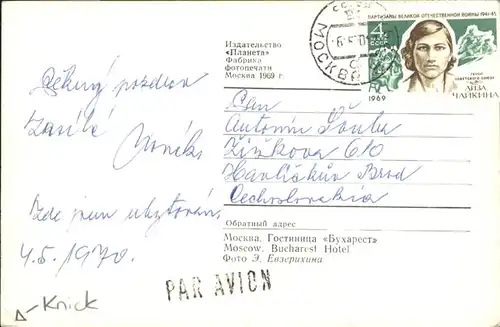 Издательство
«Планета»
Фабрика
фотопечати
Москва 1969 г.
ПАРТИЗАНЫ ВЕЛИКОЙ ОТЕЧЕСТВЕННОЙ ВОЙНЫ 1941-45
4
ПОЧТА
СССР
ГЕРОЙ
СОВЕТСКОГО СОЮЗА
ЛИЗА
ЧАЙКИНА
1969
МОСКВА
Pěkný pozdrav
Zasílá
Zde jsem ubytován
4.5.1970.
Pan
Antonín
Žižkova 610
Havlíčkův Brod
Čechoslovakia
Обратный адрес
Москва. Гостиница «Бухарест»
Moscow. Bucharest Hotel
Фото Э. Евзерихина
PAR AVION
Knick